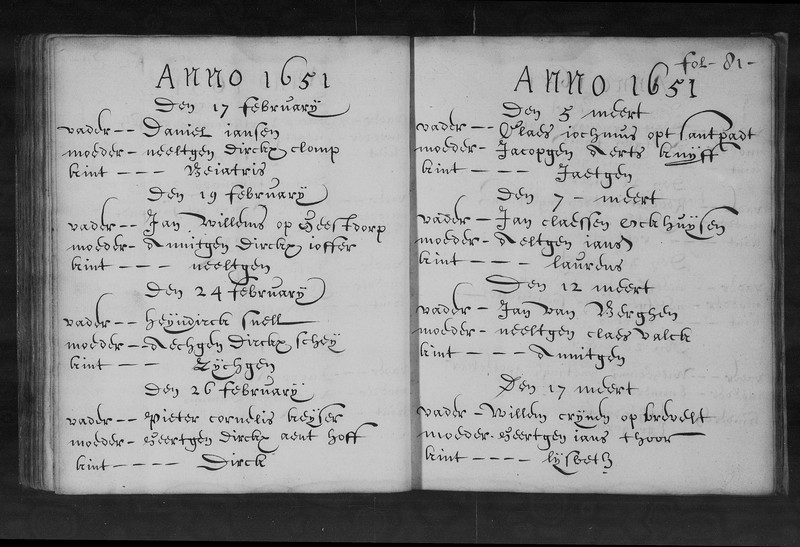 Anno 1651
Den 17 february
vader -- Daniel jansen
moeder - neeltgen Dirckx clomp
kint ---- Beiatris
Den 19 february
vader -- Jan Willems op Geestdorp
moeder - Annitgen Dirckx joffer
kint ---- neeltgen
Den 24 february
vader -- heyndirck snell
moeder - Aechgen Dirckx schey
kint ----
Den 26 february
vader -- Pieter cornelis keyser
moeder - Geertgen Dirckx aent hoff
kint ---- Dirck
fol - 81 -
Anno 1651
Den 5 meert
vader -- Claes jochmus opt santpadt
moeder - Jacopgen Aerts kruyff
kint ---- Jaetgen
Den 7 - meert
vader -- Jan claessen Ockhuysen
moeder - Aeltgen jans
kint ---- laurens
Den 12 meert
vader -- Jan van Berghen
moeder - neeltgen claes valck
kint ---- Annitgen
Den 17 meert
vader - Willem crynen op brevelt
moeder - Geertgen jans thoor
kint ---- lysbeth